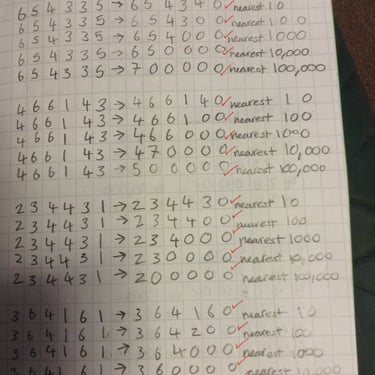 654335→654340 nearest 10
654335→654300 nearest 100
654335→654000 nearest 1000
654335→650000 nearest 10,000
654335→700000 nearest 100,000
466143→466140 nearest 10
466143→466100 nearest 100
466143→466000 nearest 1000
466143→470000 nearest 10,000
466143→500000 nearest 100,000
234431→234430 nearest 10
234431→234400 nearest 100
234431→234000 nearest 1000
234431→230000 nearest 10,000
234431→200000 nearest 100,000
364161→364160 nearest 10
364161→364200 nearest 100
364161→364000 nearest 1000
364161→360000 nearest